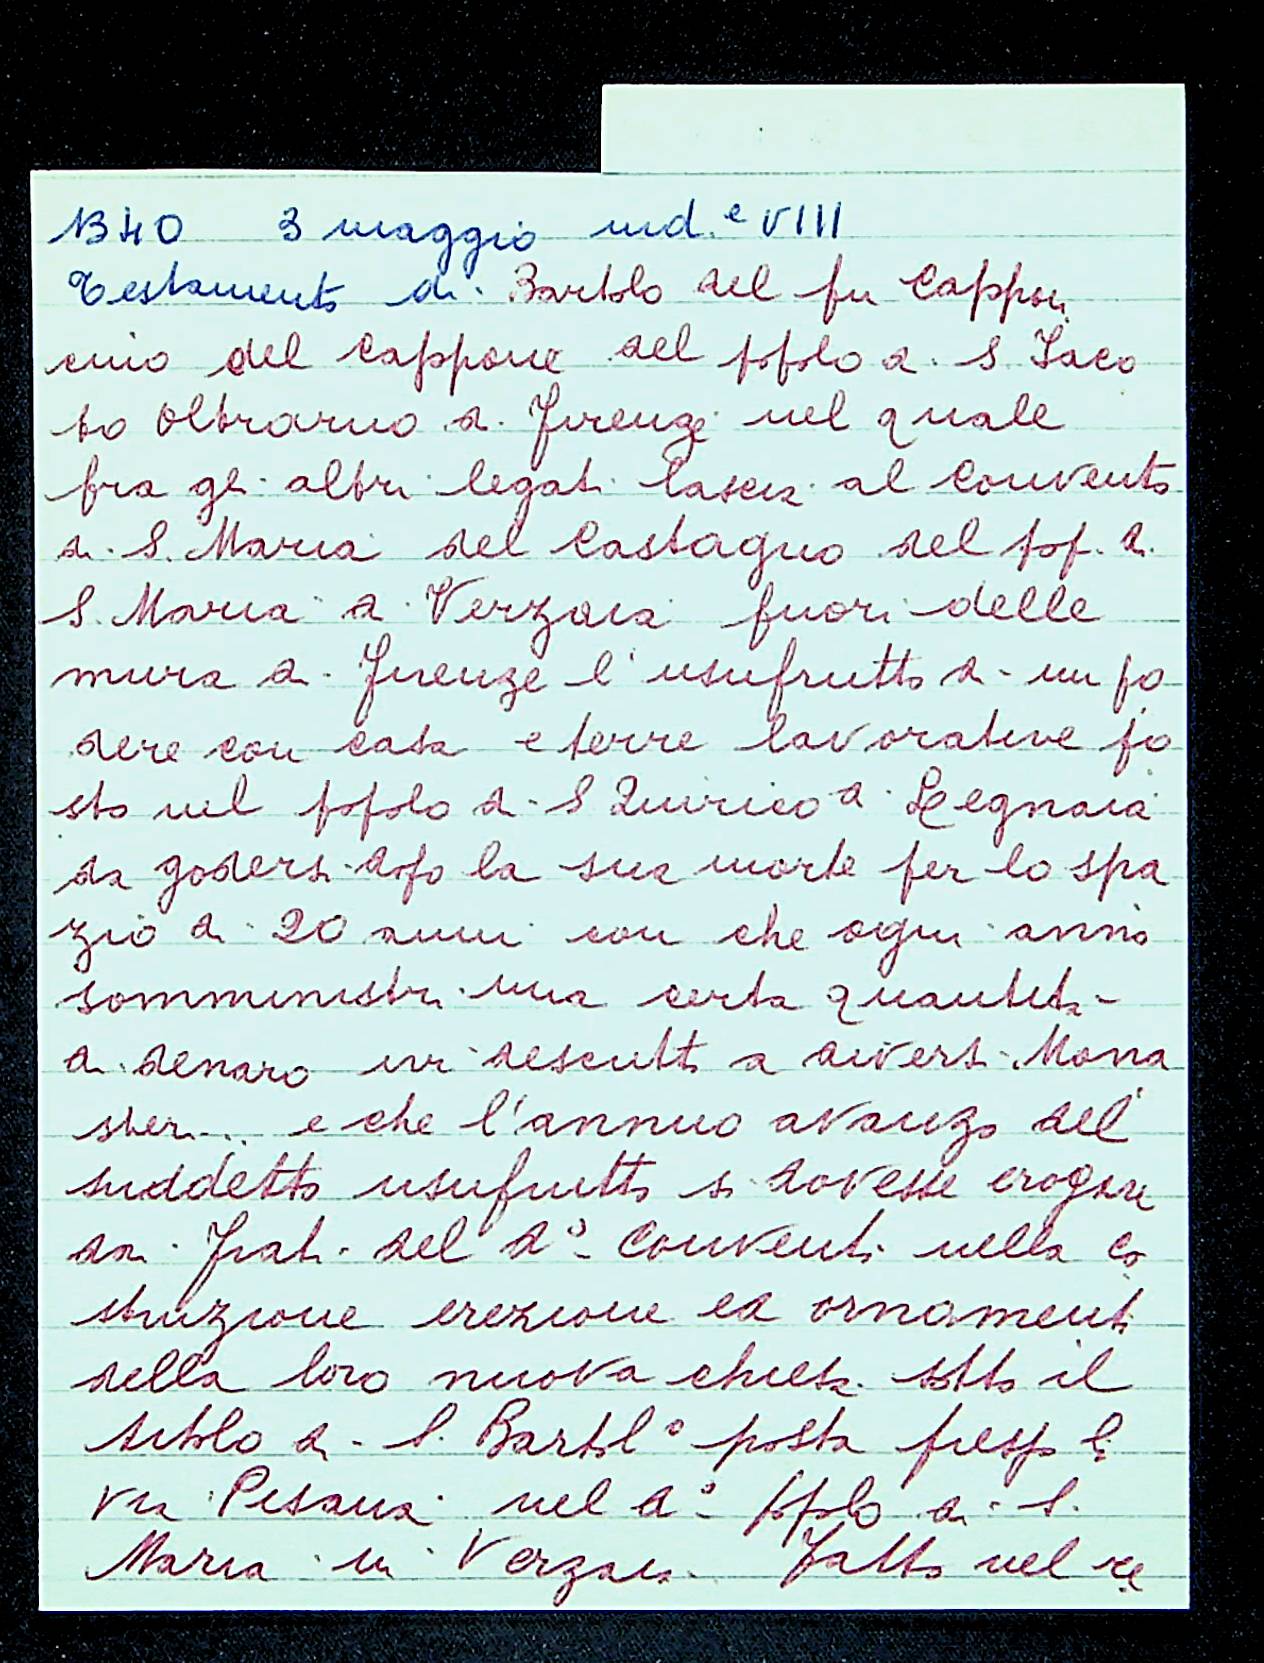 1340 3 maggio ind.e VIII
Testamento di Bartolo del fu Cappon
cino del Cappone del popolo di S. Iaco
bo Oltrarno di Firenze nel quale
fra gli altri legati lascia al Convento
di S. Maria del Castagno del pop. di
S. Maria a Verzaia fuori delle
mura di Firenze l'usufrutto di un po
dere con casa e terre lavorative po
sto nel popolo di S Quirico a Legnaia
da godersi dopo la sua morte per lo spa
zio di 20 anni con che ogni anno
somministri una certa quantità
di denaro ivi descritti a diversi Mona
steri... e che l'annuo avanzo del
suddetto usufrutto si dovesse erogare
dai Frati del do Convento nella co
struzione erezione ed ornamenti
della loro nuova chiesa sotto il
titolo di S. Bartolo posta presso la
via Pisana nel do popolo di S.
Maria in Verzaia. Fatto nel re